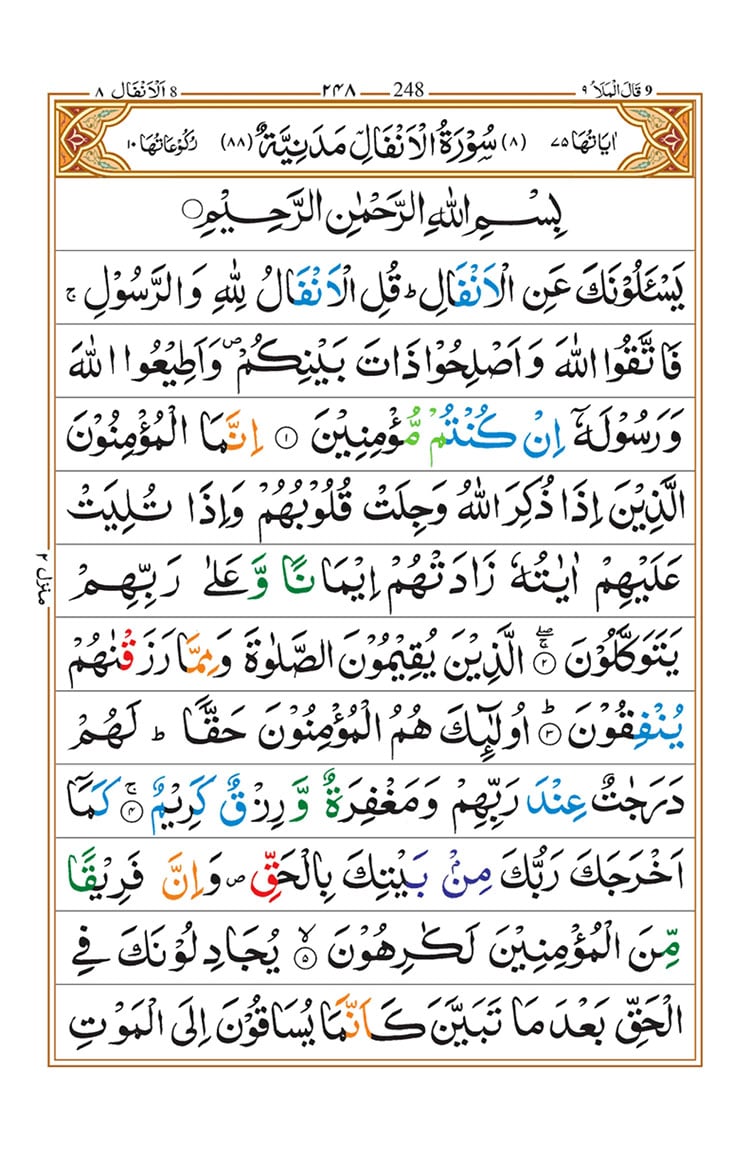 ٩ قَالَ الْمَلَاُ 9 248 ٢٤٨ 8 اَلْاَنْفَال ٨
اٰيَاتُهَا ٧٥ (٨) سُوْرَةُ الْاَنْفَالِ مَدَنِيَّةٌ (٨٨) رُكُوْعَاتُهَا ١٠
بِسْمِ اللّٰهِ الرَّحْمٰنِ الرَّحِيْمِ ○
يَسْـَٔلُوْنَكَ عَنِ الْاَنْفَالِ ؕ قُلِ الْاَنْفَالُ لِلّٰهِ وَالرَّسُوْلِ ۚ
فَاتَّقُوا اللّٰهَ وَاَصْلِحُوْا ذَاتَ بَيْنِكُمْ ۪ وَاَطِيْعُوا اللّٰهَ
وَرَسُوْلَهٗۤ اِنْ كُنْتُمْ مُّؤْمِنِيْنَ ۝١ اِنَّمَا الْمُؤْمِنُوْنَ
الَّذِيْنَ اِذَا ذُكِرَ اللّٰهُ وَجِلَتْ قُلُوْبُهُمْ وَاِذَا تُلِيَتْ
عَلَيْهِمْ اٰيٰتُهٗ زَادَتْهُمْ اِيْمَانًا وَّعَلٰى رَبِّهِمْ
يَتَوَكَّلُوْنَ ۝٢ۚۖ الَّذِيْنَ يُقِيْمُوْنَ الصَّلٰوةَ وَمِمَّا رَزَقْنٰهُمْ
يُنْفِقُوْنَ ۝٣ؕ اُولٰٓئِكَ هُمُ الْمُؤْمِنُوْنَ حَقًّا ؕ لَهُمْ
دَرَجٰتٌ عِنْدَ رَبِّهِمْ وَمَغْفِرَةٌ وَّرِزْقٌ كَرِيْمٌ ۝٤ۚ كَمَاۤ
اَخْرَجَكَ رَبُّكَ مِنْۢ بَيْتِكَ بِالْحَقِّ ۪ وَاِنَّ فَرِيْقًا
مِّنَ الْمُؤْمِنِيْنَ لَكٰرِهُوْنَ ۝٥ۙ يُجَادِلُوْنَكَ فِي
الْحَقِّ بَعْدَ مَا تَبَيَّنَ كَاَنَّمَا يُسَاقُوْنَ اِلَى الْمَوْتِ
منزل ٢